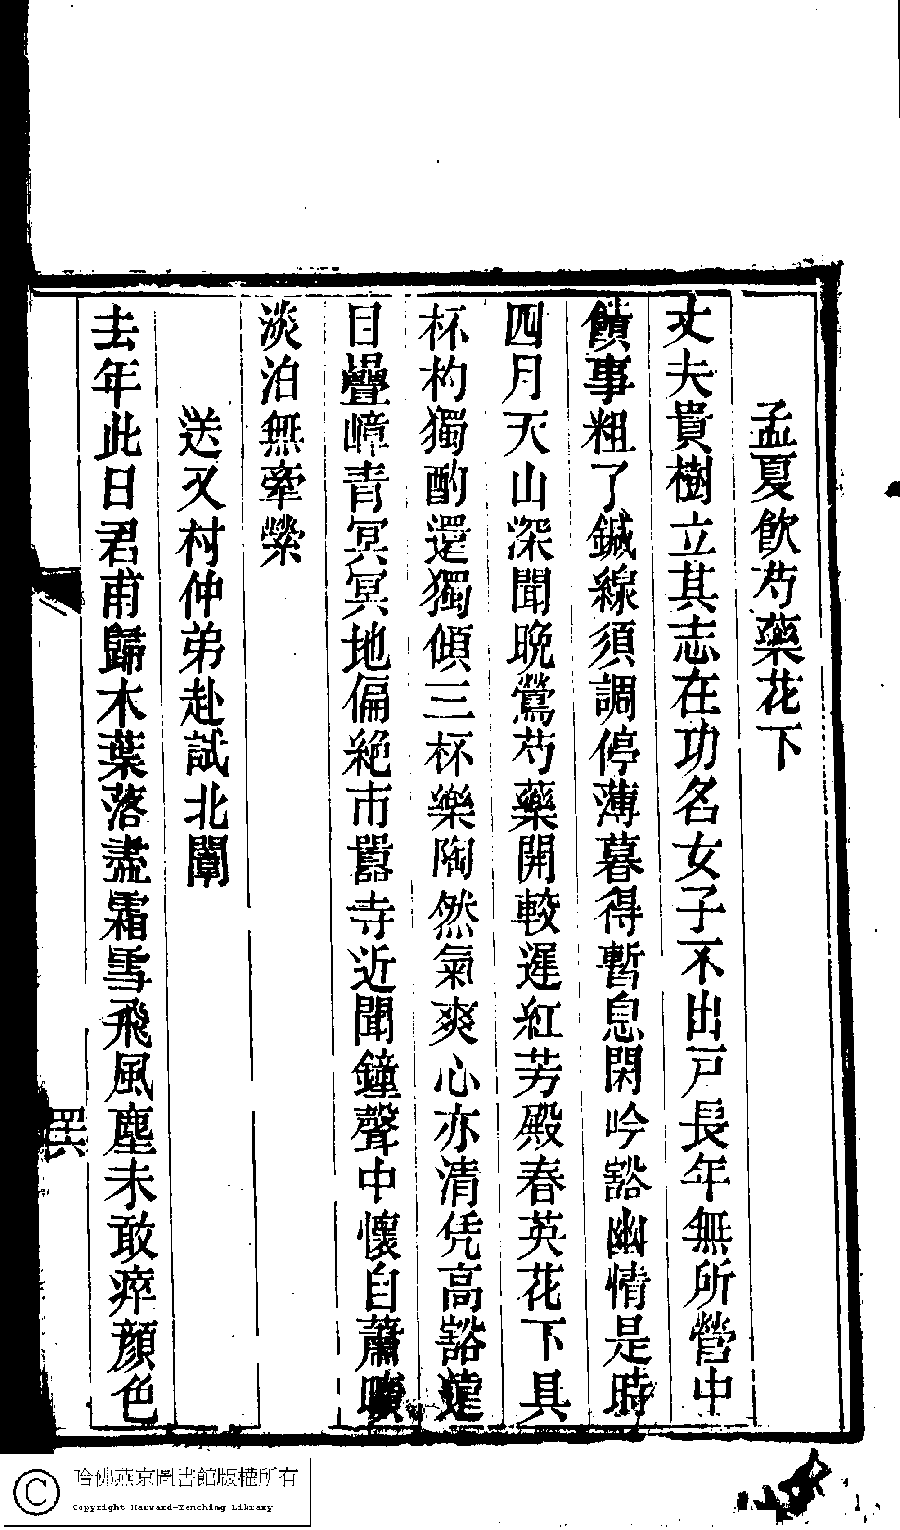 孟夏飲芍藥花下
丈夫貴樹立其志在功名女子不出戸長年無所營中
饋事粗了鍼線須調停薄暮得暫息閑吟豁幽情是時
四月天山深聞晚鶯芍藥開較遲紅芳殿春英花下具
杯杓獨酌還獨傾三杯樂陶然氣爽心亦清凭高豁遠
目疊嶂青冥冥地偏絕市囂寺近聞鐘聲中懷自蕭曠
淡泊無牽縈
送又村仲弟赴試北闈
去年此日君甫歸木葉落盡霜雪飛風塵未敢瘁顏色
哈佛燕京圖書館版權所有
Copyright Harvard-Yenching Library